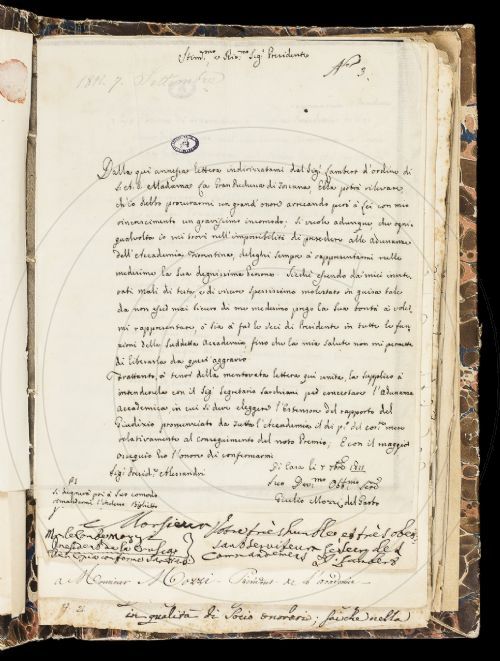 Ill.mo e Riv.mo Sig.r Presidente
N.o 3.
1811. 7. Settembre
Dalla qui annessa lettera indirizzatami dal Sig.r Lambert d'ordine di
S.A.I. Madama la Gran Duchessa di Toscana, Ella potrà rilevare,
ch'io debbo procurarmi un grand'onore arrecando però a Lei con mio
rincrescimento un gravissimo incomodo. Si vuole adunque, che ogni-
qualvolta io mi trovi nell'impossibilità di presedere alle adunanze
dell'Accademia Fiorentina, deleghi sempre a rappresentarmi nelle
medesime la Sua degnissima Persona. Sicchè essendo da' miei invete-
rati mali di testa, e di viscere spessissimo molestato in guisa tale
da non esser mai sicuro di me medesimo prego la Sua bontà a voler
mi rappresentare, o sia a far le veci di Presidente in tutte le fun
zioni della suddetta Accademia, fino che la mia salute non mi permetta
di liberarla da questo aggravio.
Frattanto, a tenore della mentovata lettera qui unita, la supplico a
intendersela con il Sig.r Segretario Sarchiani per concertare l'Adunanza
Accademica in cui si deve eleggere l'Estensore del rapporto del
Giudizio pronunziato da tutta l'Accademia il dì p.o del cor.te mese
relativamente al conseguimento del noto Premio; E con il maggior
ossequio ho l'onore di confermarmi
Sig.r Presid.te Alessandri
Di Casa li 7 7bre 1811
Suo Dev.mo Obb.mo Serv.
Giulio Mozzi del Garbo
PS
Si degnerà poi a Suo comodo
rimandarmi l'incluso biglietto
Monsieur
Votre très humble et très obeis
sant serviteur
Commandements
a Monsieur Mozzi Président de l'academie
in qualità di Socio onorario; sicchè nella